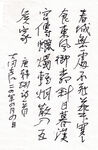 春城無處不飛花寒
食東風御柳斜日暮漢
宮傳蠟燭輕煙散入五
侯家